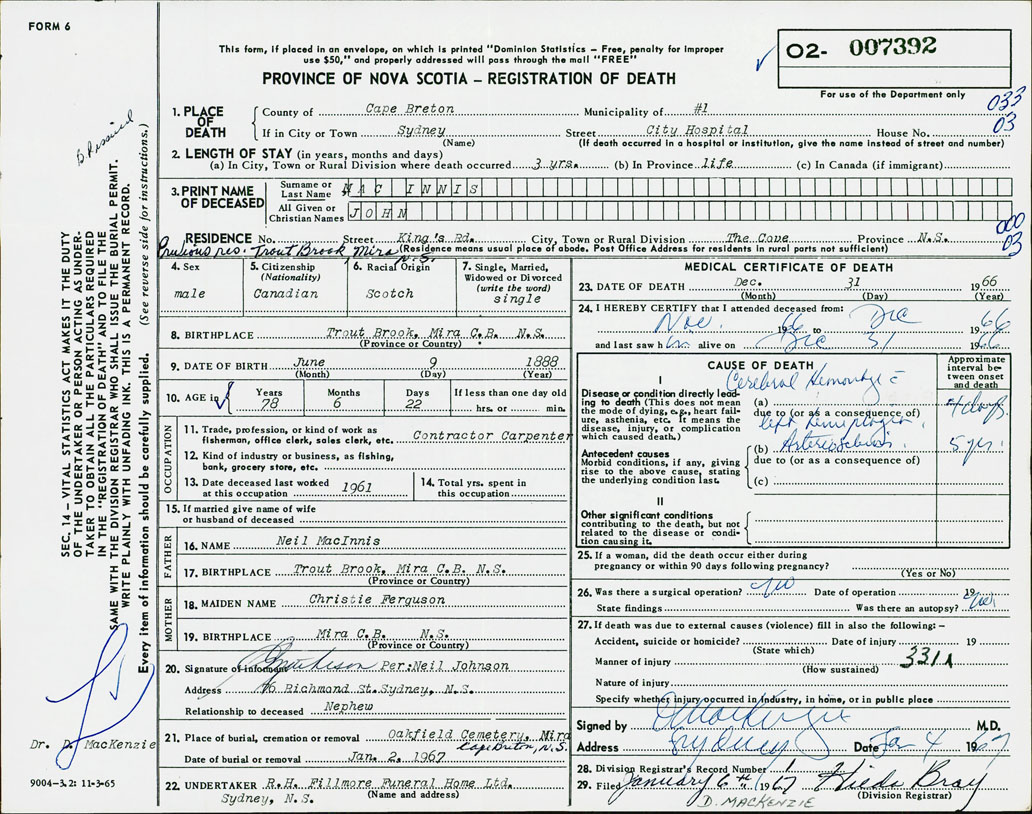 FORM 6
This form, if placed in an envelope, on which is printed "Dominion Statistics – Free, penalty for improper
use $50," and properly addressed will pass through the mail "FREE"
PROVINCE OF NOVA SCOTIA – REGISTRATION OF DEATH
02- 007392
For use of the Department only
033
03
1. PLACE OF DEATH
County of Cape Breton Municipality of #1
If in City or Town Sydney Street City Hospital House No.
(Name) (If death occurred in a hospital or institution, give the name instead of street and number)
2. LENGTH OF STAY (in years, months and days)
(a) In City, Town or Rural Division where death occurred 3 yrs. (b) In Province life (c) In Canada (if immigrant)
3. PRINT NAME OF DECEASED
Surname or Last Name MAC INNIS
All Given or Christian Names JOHN
000
03
RESIDENCE No. Street King's Rd. City, Town or Rural Division The Cove Province N.S.
Previous res. Trout Brook Mira N.S. (Residence means usual place of abode. Post Office Address for residents in rural parts not sufficient)
4. Sex
male
5. Citizenship (Nationality)
Canadian
6. Racial Origin
Scotch
7. Single, Married, Widowed or Divorced (write the word)
single
8. BIRTHPLACE Trout Brook, Mira C.B. N.S.
(Province or Country)
9. DATE OF BIRTH June 9 1888
(Month) (Day) (Year)
10. AGE in Years Months Days If less than one day old
78 6 22 hrs. or min.
OCCUPATION
11. Trade, profession, or kind of work as
fisherman, office clerk, sales clerk, etc. Contractor Carpenter
12. Kind of industry or business, as fishing,
bank, grocery store, etc.
13. Date deceased last worked
at this occupation 1961
14. Total yrs. spent in
this occupation
15. If married give name of wife
or husband of deceased
FATHER
16. NAME Neil MacInnis
17. BIRTHPLACE Trout Brook, Mira C.B. N.S.
(Province or Country)
MOTHER
18. MAIDEN NAME Christie Ferguson
19. BIRTHPLACE Mira C.B. N.S.
(Province or Country)
20. Signature of informant Per:Neil Johnson
Address 76 Richmond St.Sydney, N.S.
Relationship to deceased Nephew
21. Place of burial, cremation or removal Oakfield Cemetery, Mira
Cape Breton, N.S.
Date of burial or removal Jan. 2, 1967
22. UNDERTAKER R.H. Fillmore Funeral Home Ltd.
Sydney, N.S. (Name and address)
MEDICAL CERTIFICATE OF DEATH
23. DATE OF DEATH Dec. 31 1966
(Month) (Day) (Year)
24. I HEREBY CERTIFY that I attended deceased from:
Nov. 1966 to Dec 1966
and last saw him alive on Dec 31 1966
CAUSE OF DEATH
Approximate interval between onset and death
I
Disease or condition directly leading to death (This does not mean the mode of dying, e.g., heart failure, asthenia, etc. It means the disease, injury, or complication which caused death.)
Cerebral Hemorrhage
(a) days
due to (or as a consequence of)
left hemiplegia
Antecedent causes
Morbid conditions, if any, giving rise to the above cause, stating the underlying condition last.
(b) Arteriosclerosis 5 yrs.
due to (or as a consequence of)
(c)
II
Other significant conditions
contributing to the death, but not
related to the disease or condition causing it.
25. If a woman, did the death occur either during
pregnancy or within 90 days following pregnancy?
(Yes or No)
26. Was there a surgical operation? no Date of operation
State findings Was there an autopsy? no
27. If death was due to external causes (violence) fill in also the following: –
Accident, suicide or homicide? Date of injury 19
(State which)
Manner of injury 331
(How sustained)
Nature of injury
Specify whether injury occurred in industry, in home, or in public place
Signed by D MacKenzie M.D.
Address Sydney Date Jan 4 1967
28. Division Registrar's Record Number 1
29. Filed January 6th 1967 Hilda Bray
(Division Registrar)
D. MACKENZIE
SEC. 14 – VITAL STATISTICS ACT MAKES IT THE DUTY
OF THE UNDERTAKER OR PERSON ACTING AS UNDER-
TAKER TO OBTAIN ALL THE PARTICULARS REQUIRED
IN THE "REGISTRATION OF DEATH" AND TO FILE THE
SAME WITH THE DIVISION REGISTRAR WHO SHALL ISSUE THE BURIAL PERMIT.
WRITE PLAINLY WITH UNFADING INK. THIS IS A PERMANENT RECORD.
Every item of information should be carefully supplied. (See reverse side for instructions.)
Dr. D. MacKenzie
9004–3.2: 11-3-65